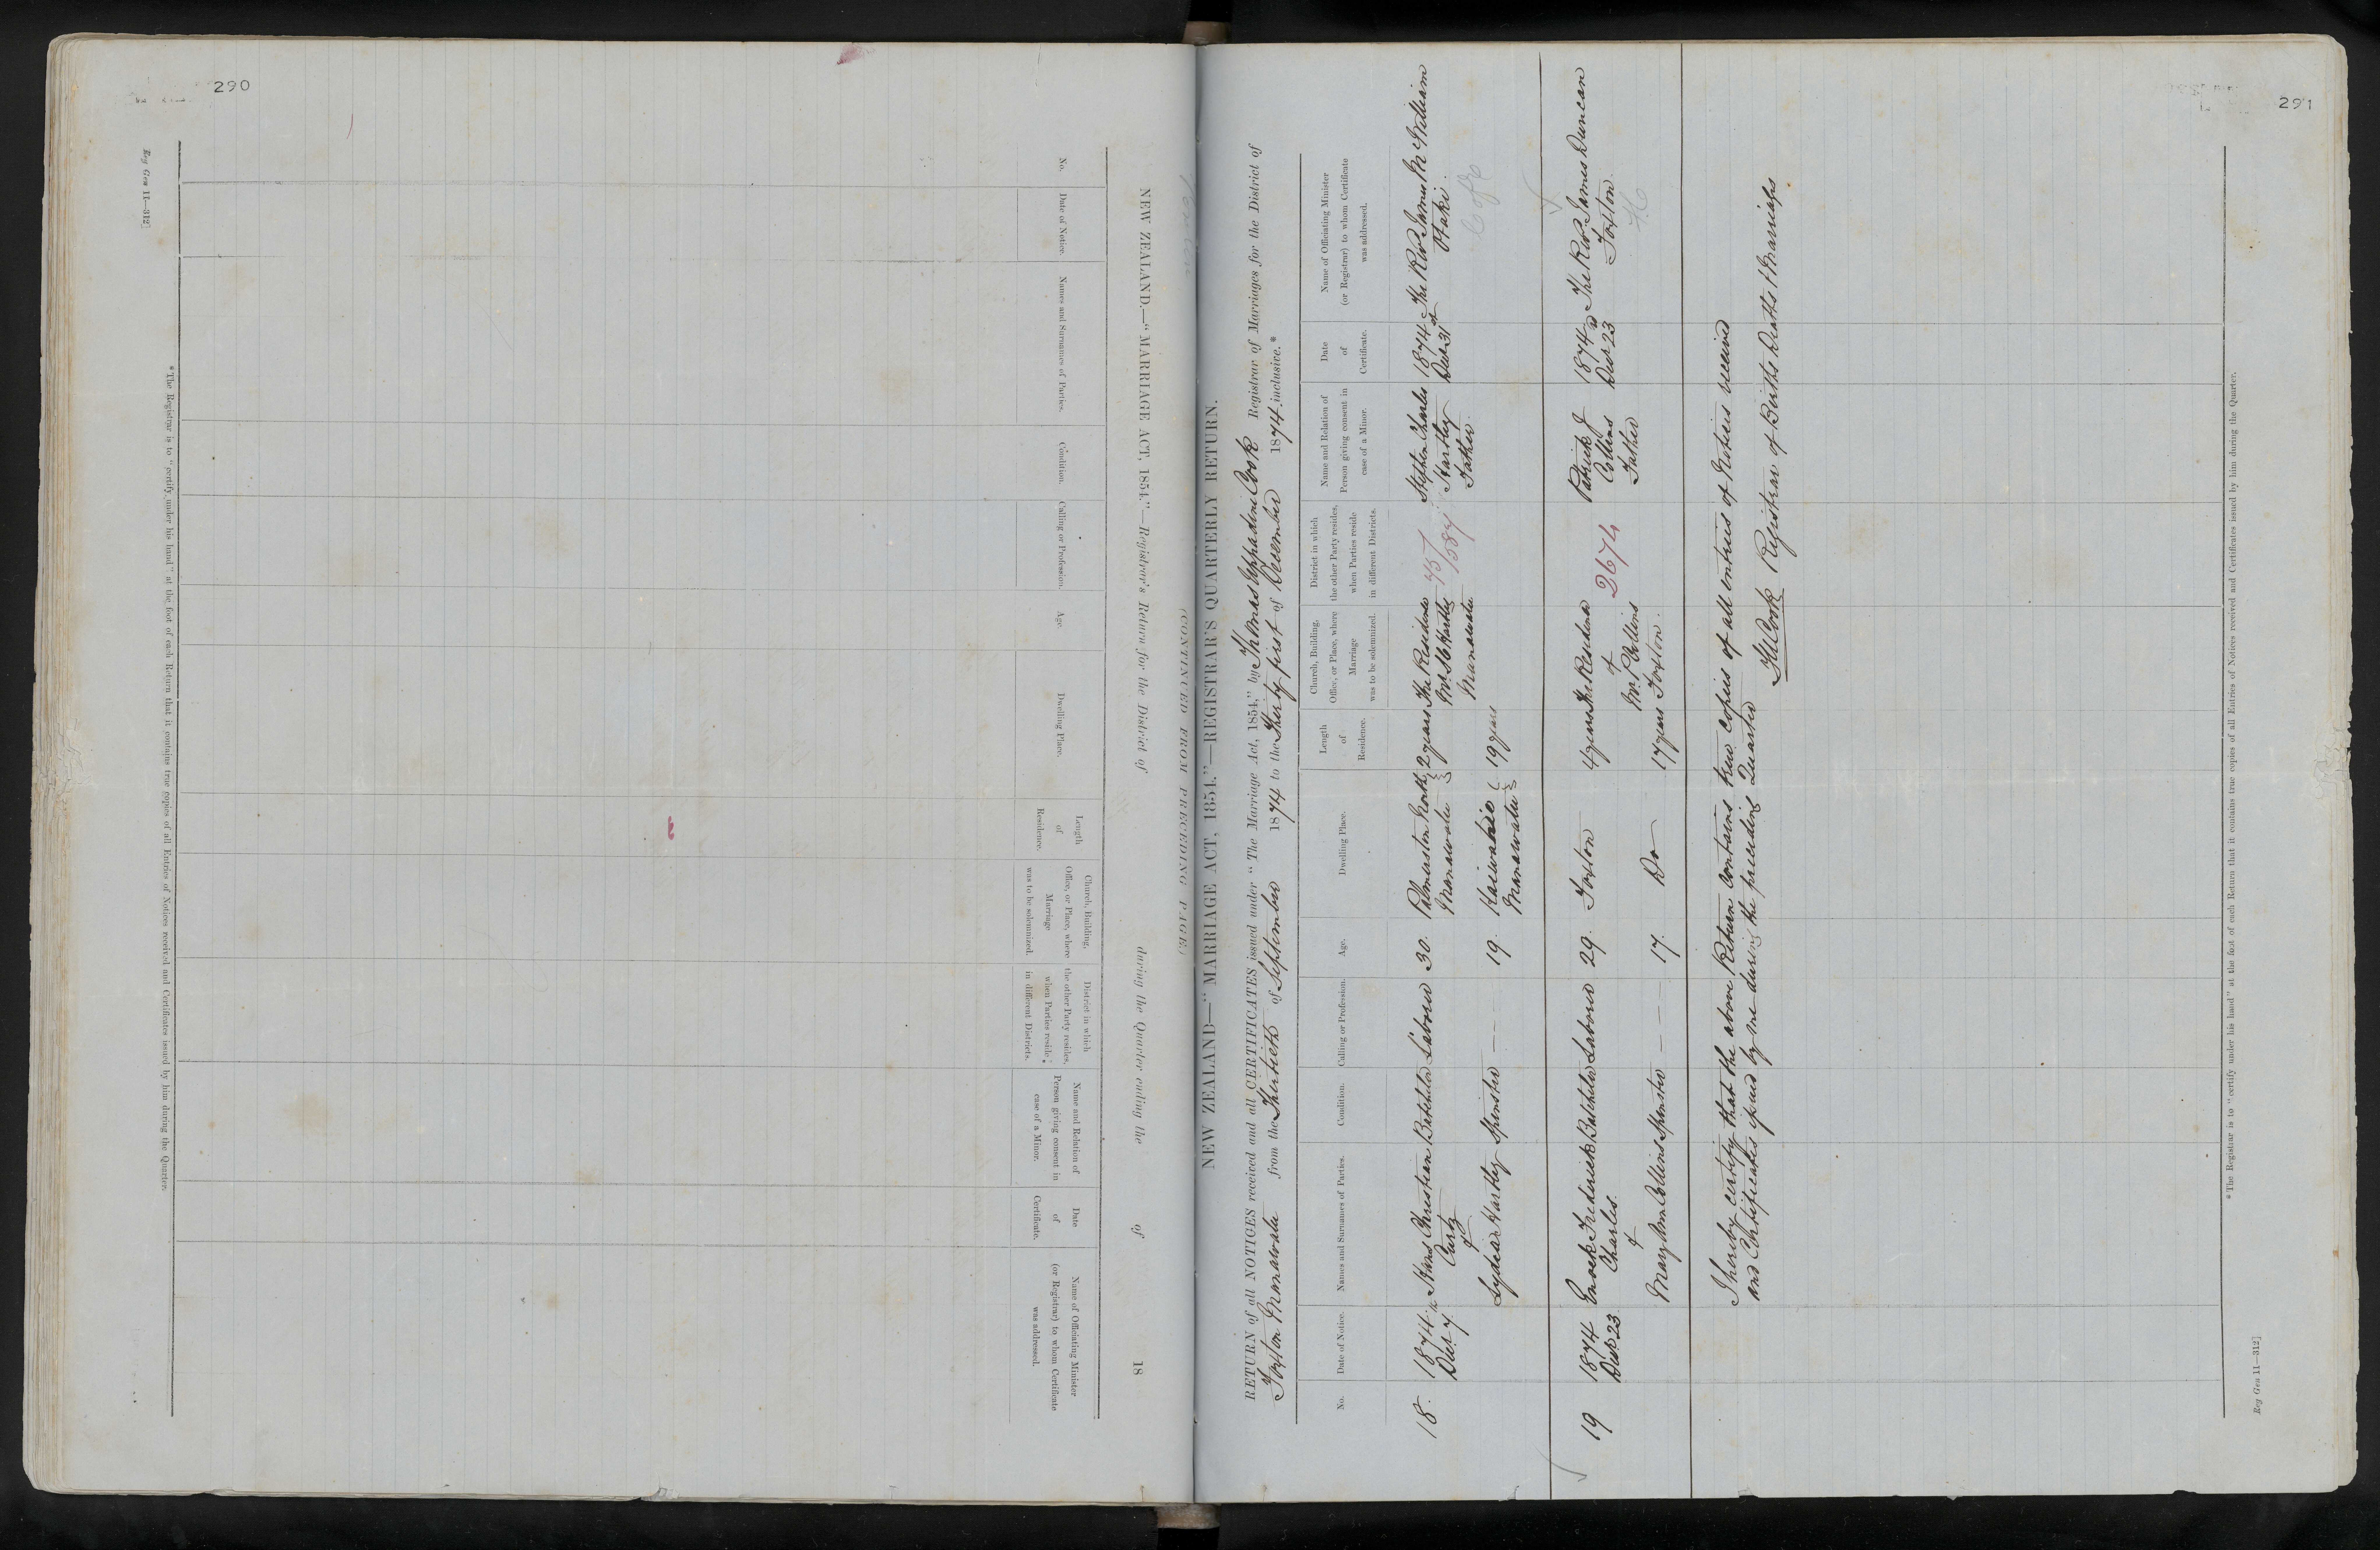 290
NEW ZEALAND.—"MARRIAGE ACT, 1854."—Registrar's Return for the District of during the Quarter ending the of 18
(CONTINUED FROM PRECEDING PAGE)
No.
Date of Notice.
Names and Surnames of Parties.
Condition.
Calling or Profession.
Age.
Dwelling Place.
Length
of
Residence.
Church, Building,
Office, or Place, where
Marriage
was to be solemnized.
District in which
the other Party resides,
when Parties reside
in different Districts.
Name and Relation of
Person giving consent in
case of a Minor.
Date
of
Certificate.
Name of Officiating Minister
(or Registrar) to whom Certificate
was addressed.
* The Registrar is to "certify under his hand" at the foot of each Return that it contains true copies of all Entries of Notices received and Certificates issued by him during the Quarter.
Reg Gen 11—312]
291
NEW ZEALAND—"MARRIAGE ACT, 1854."—REGISTRAR'S QUARTERLY RETURN.
RETURN of all NOTICES received and all CERTIFICATES issued under "The Marriage Act, 1854," by Thomas Uppadine Cook Registrar of Marriages for the District of
Foxton Manawatu from the Thirtieth of September 1874 to the Thirty first of December 1874, inclusive.*
No.
Date of Notice.
Names and Surnames of Parties.
Condition.
Calling or Profession.
Age.
Dwelling Place.
Length
of
Residence.
Church, Building,
Office, or Place, where
Marriage
was to be solemnized.
District in which
the other Party resides,
when Parties reside
in different Districts.
Name and Relation of
Person giving consent in
case of a Minor.
Date
of
Certificate.
Name of Officiating Minister
(or Registrar) to whom Certificate
was addressed.
18.
1874.
Decr 7th
Hans Christian
Curtz
&
Lydeia Hartley
Batchelor
Spinster
Laborer
— — —
30.
19.
Palmerston North
Manawatu
Manawatu
2 years
19 years
The Residence
Mr S C Hartley
Manawatu
Stephen Charles
Hartley
Father.
1874
Decr 31st
The Revd James McWilliam
Otaki.
C of E
19
1874
Decr 23
Enoch Frederick
Charles.
&
Mary Ann Collins
Batchelor
Spinster
Laborer
— — —
29.
17.
Foxton
Do
4 years
17 years
The Residence
of
Mr P Collins
Foxton.
2674
Patrick J
Collins
Father
1874
Decr 23d
The Revd James Duncan
Foxton.
I hereby certify that the above Return contains true copies of all entries of Notices received
and Certificates issued by me during the preceding Quarter
T U Cook Registrar of Births Deaths & Marriages
* The Registrar is to "certify under his hand" at the foot of each Return that it contains true copies of all Entries of Notices received and Certificates issued by him during the Quarter.
Reg Gen 11—312]